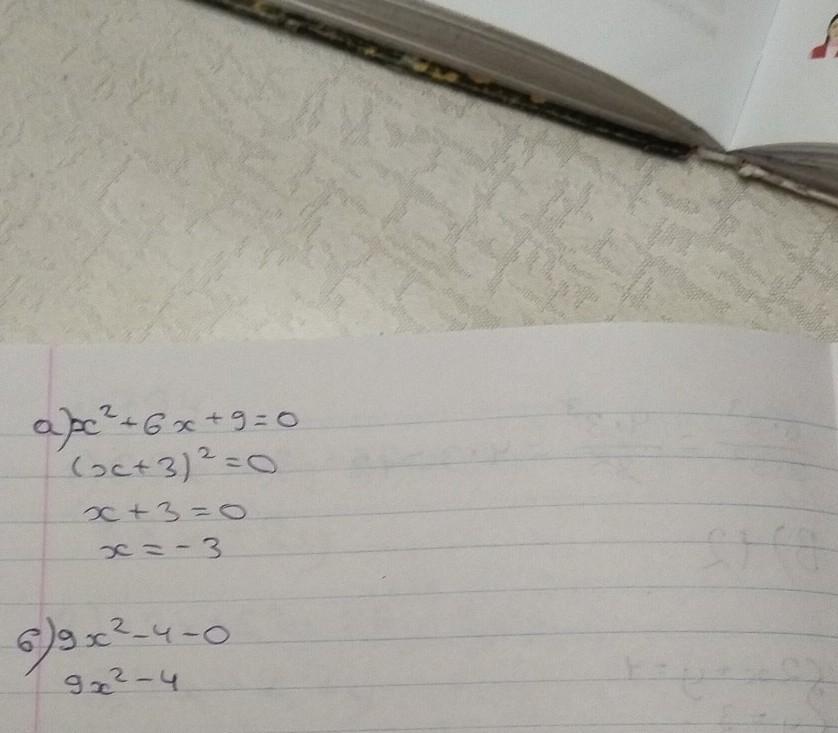 а) x² + 6x + 9 = 0
(x + 3)² = 0
x + 3 = 0
x = - 3
б) 9x² - 4 - 0
9x² - 4